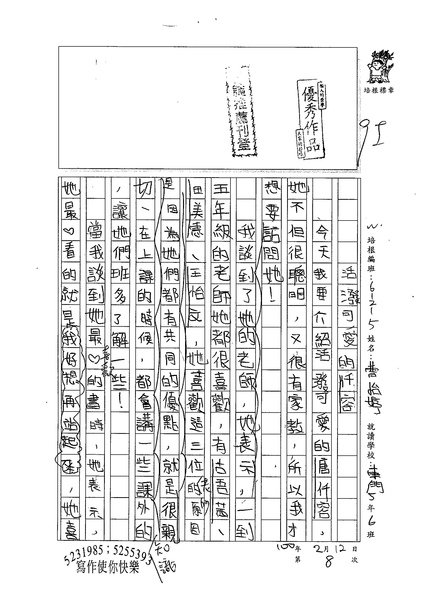 培根標章
優秀作品
95
培根編班：6125 姓名： 就讀學校：東門 5年6班
100年2月12日
第8次
活潑可愛的仟容
今天我要介紹活潑可愛的唐仟容，
她不但很聰明，又很有家教，所以我才
想要訪問她！
我談到了她的老師，她表示，一到
五年級的老師她都很喜歡，有古吾茵、
田美惠、王怡文，她喜歡這三位老師的原因
是因為她們都有共同的優點，就是很親
切、在上課的時候，都會講一些課外的知識
，讓她們班多了解一些！
當我談到她最喜歡的書時，她表示，
她最♡看的就是我好想再站起來，她喜
5231985；5255393
寫作使你快樂